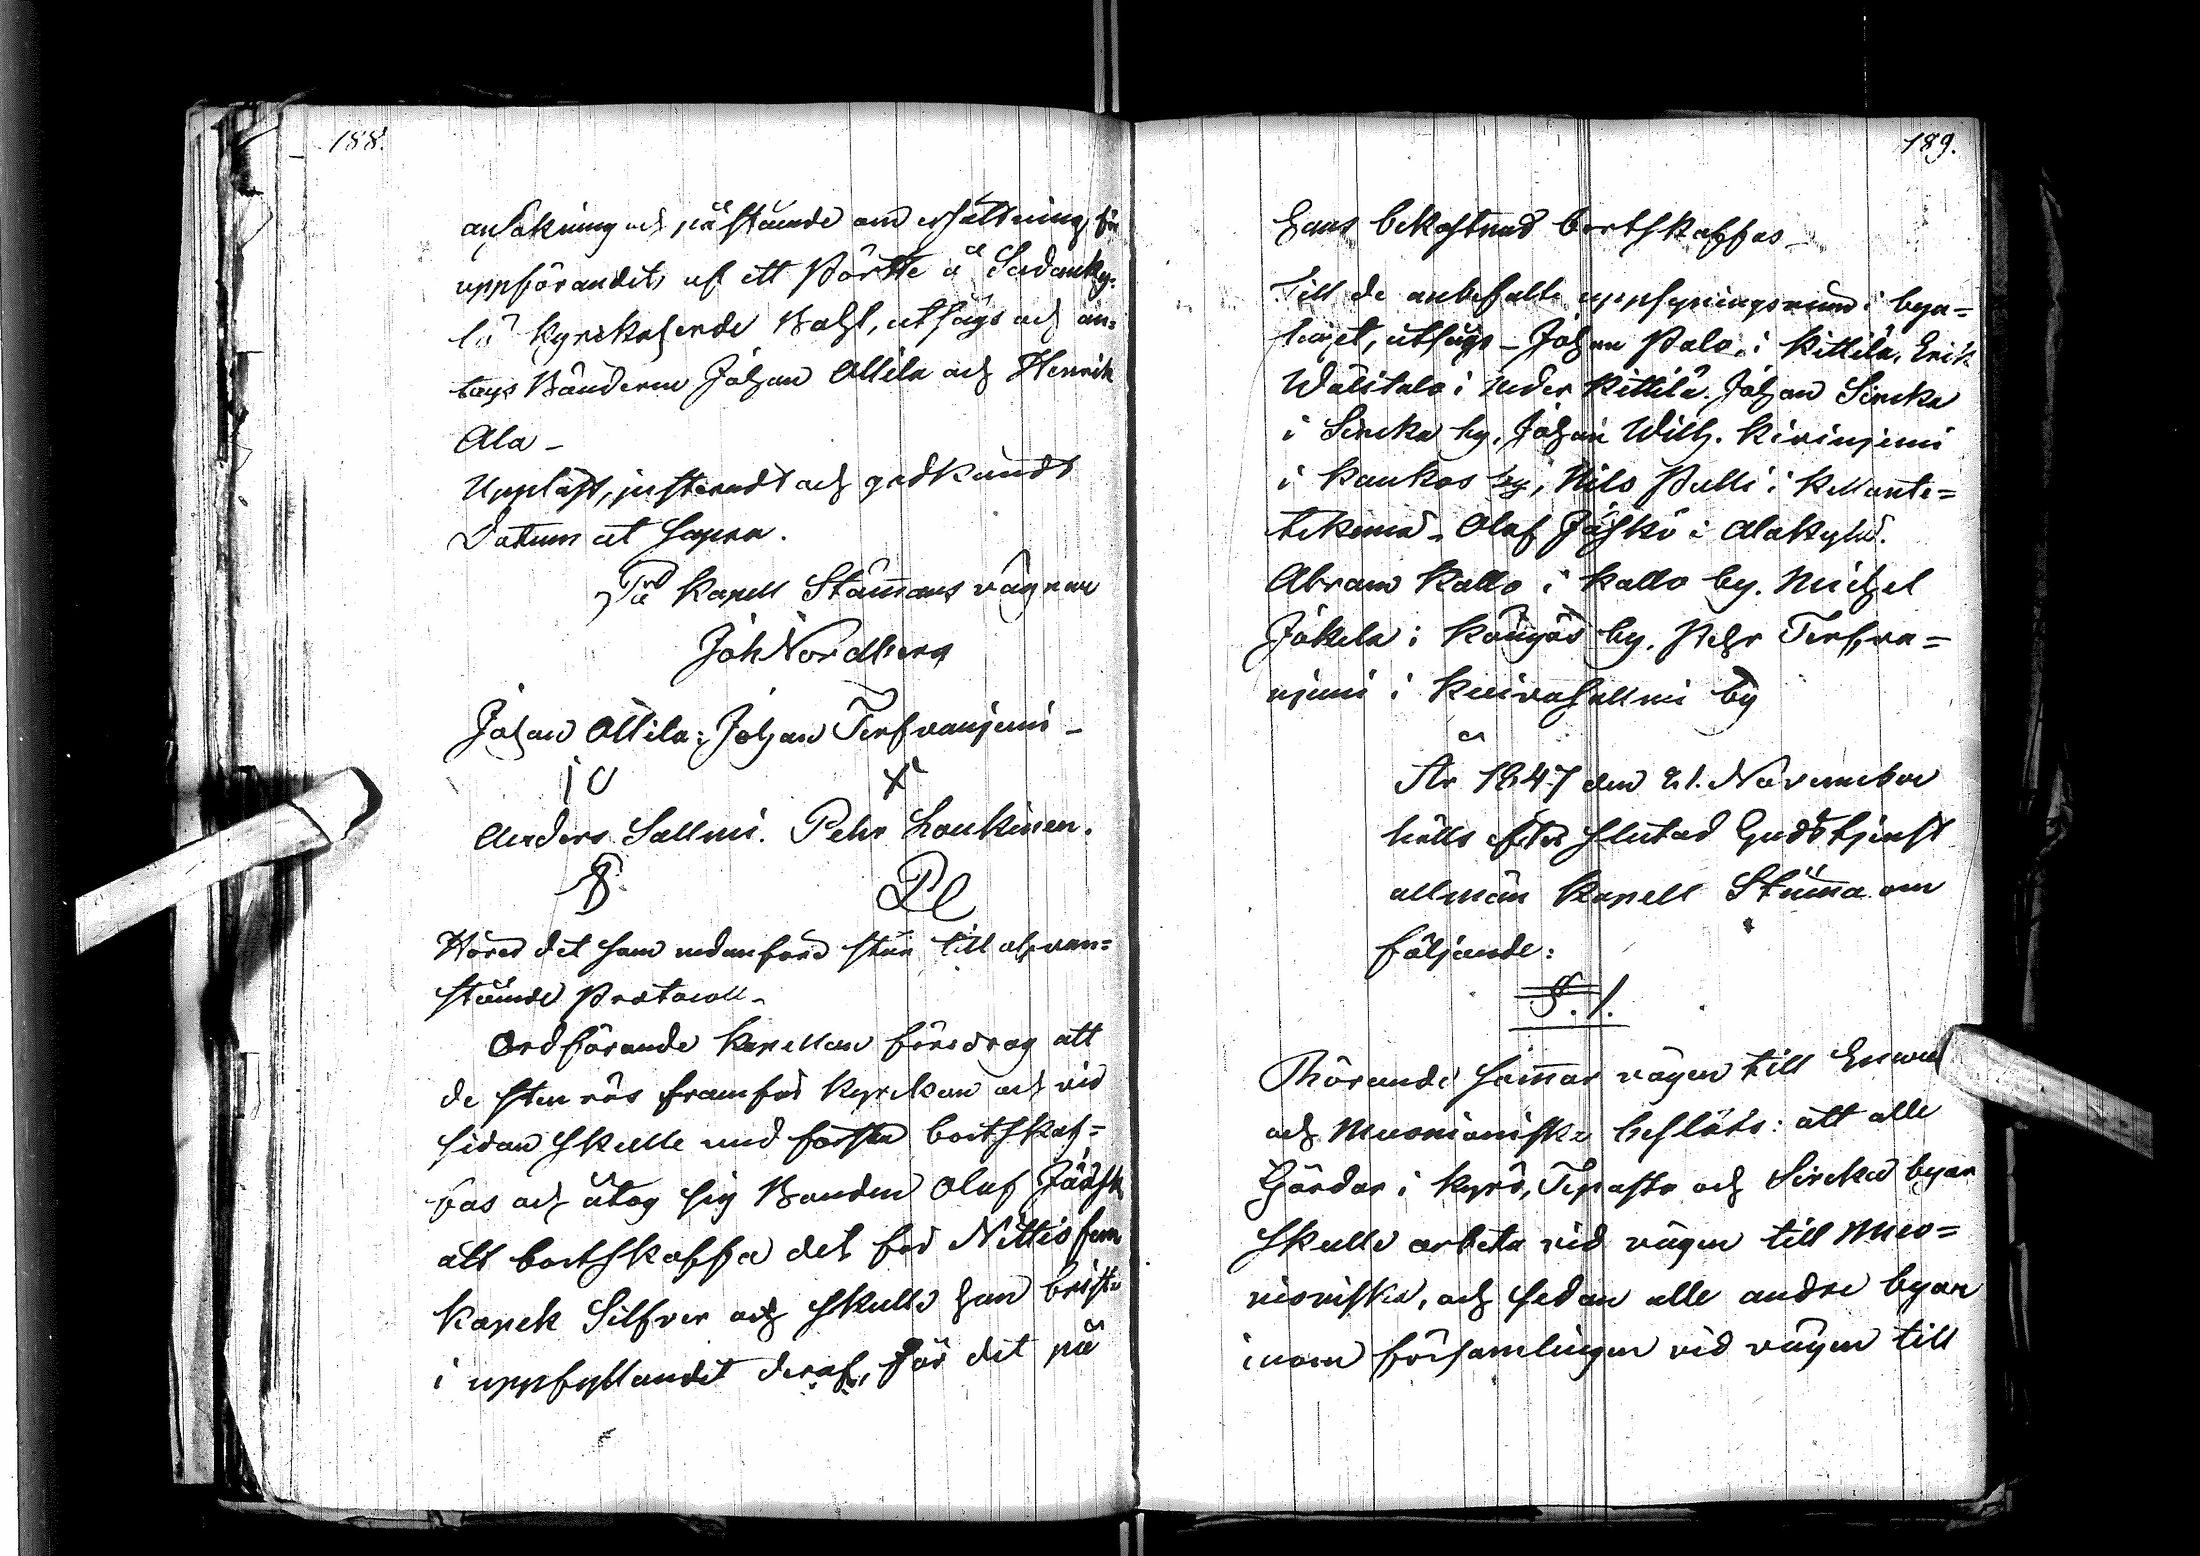 188.
ansökning och påstående om ersättning för
uppförandet af ett Pörtte å Sodanky-
lä Kyrkoherde Bohl, utsågs och an-
togs Bönderne Johan Ollila och Henrik
Ala –
Uppläst, justeradt och godkändt
Datum ut supra.
På Kapell Stämmans vägnar
Joh Nordberg
Johan Ollila; Johan Terfvaniemi –
IO X
Anders Sallmi. Pehr Loukinen.
PL
Hörer det som nedanföre står till ofvan-
stående Protocoll –
Ordförande Kapellan föredrog att
de sten rös framför Kyrkan och vid
sidan skulle med forsta bortskaf-
fas och åtog sig Bonden Olof Jääsk
att bortskaffa det for Nittiofem
Kopek Silfver och skulle han brista
i uppfyllandet deraf, får det på
189.
hans bekostnad bortskaffas –
Till de anbefalte uppsyningsmän i bya-
laget, utsågs – Johan Palo, i Kittilä, Erik
Wälitalo i Neder Kittilä. Johan Sircka
i Sircka by, Johan Wilh. Kiriniemi
i Kaukos by, Nils Pulli i Kellonte-
kemä – Olof Jäskö i Alakylä.
Abram Kallo i Kallo by. Michel
Jokela i Köngäs by. Pehr Terfva-
niemi i Kuivasallmi by
År 1847 den 21. November
hölls efter slutad Gudstjenst
allmän Kapell Stämma om
följande:
§. 1.
Rörande sommar vägen till
och Muonioniska beslöts: att alle
Gårdar i Kyrö, Tepasto och Sircka byar
skulle arbeta vid vägen till Muo-
nioniska, och sedan alle andre byar
inom församlingen vid vägen till